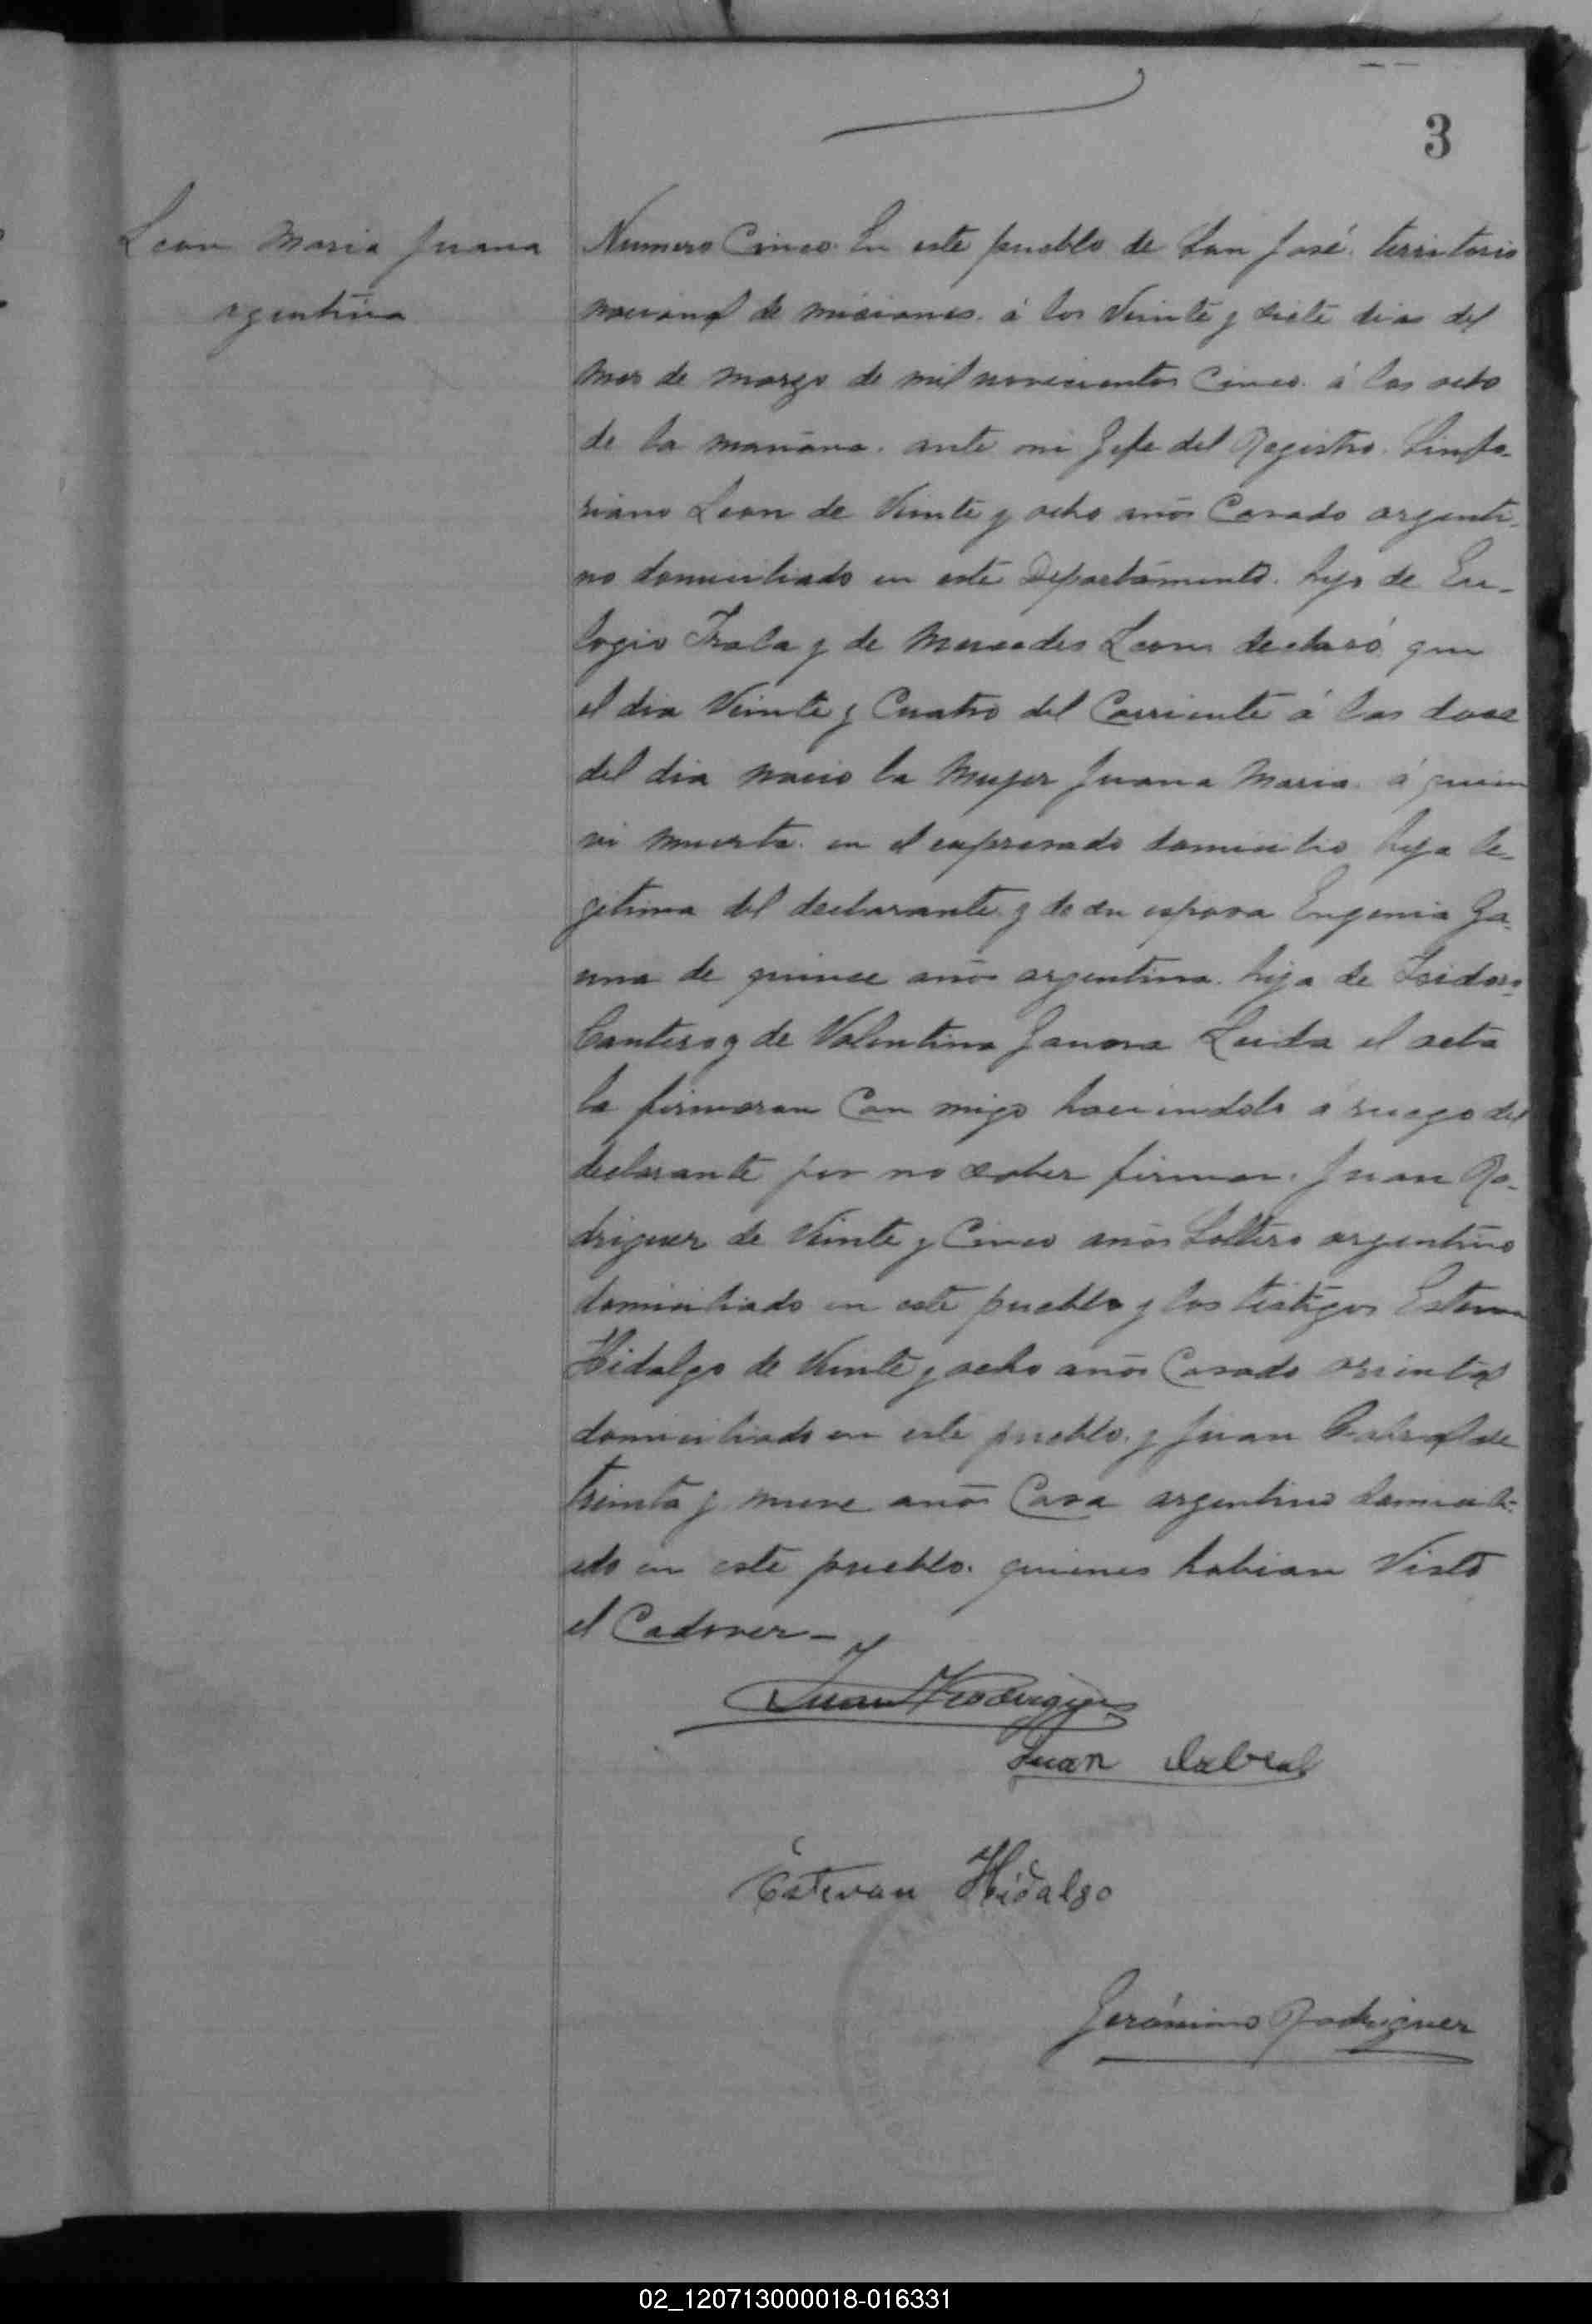 3
Leon Maria Juana
argentina
Numero Cinco. En este pueblo de San José. territorio
nacional de misiones. á los Veinte y siete dias del
mes de marzo de mil novecientos Cinco. á las ocho
de la mañana. ante mi Jefe del Registro. Sinfo-
riano Leon de Veinte y ocho años Casado argenti-
no domiciliado en este Departamento. hijo de Eu-
logio Irala y de Mercedes Leon declaró que
el dia Veinte y Cuatro del Corriente á las doce
del dia nacio la Mujer Juana Maria. á quien
vi muerta. en el expresado domicilio hija le-
gitima del declarante y de su esposa Eugenia Ga-
una de quince años argentina. hija de Isidoro
Cantero y de Valentina Gauna Leida el acta
la firmaron Con migo haciendolo a ruego del
declarante por no saber firmar. Juan Ro-
driguez de Veinte y Cinco años Soltero argentino
domiciliado en este pueblo y los testigos Estevan
Hidalgo de Veinte y ocho años Casado oriental
domiciliado en este pueblo. y Juan Cabral de
treinta y nueve años Casa argentino domicili-
ado en este pueblo. quienes habian Visto
el Cadaver-
Juan Rodriguez
Juan Cabral
Estevan Hidalgo
Gerónimo Rodriguez
02_120713000018-016331